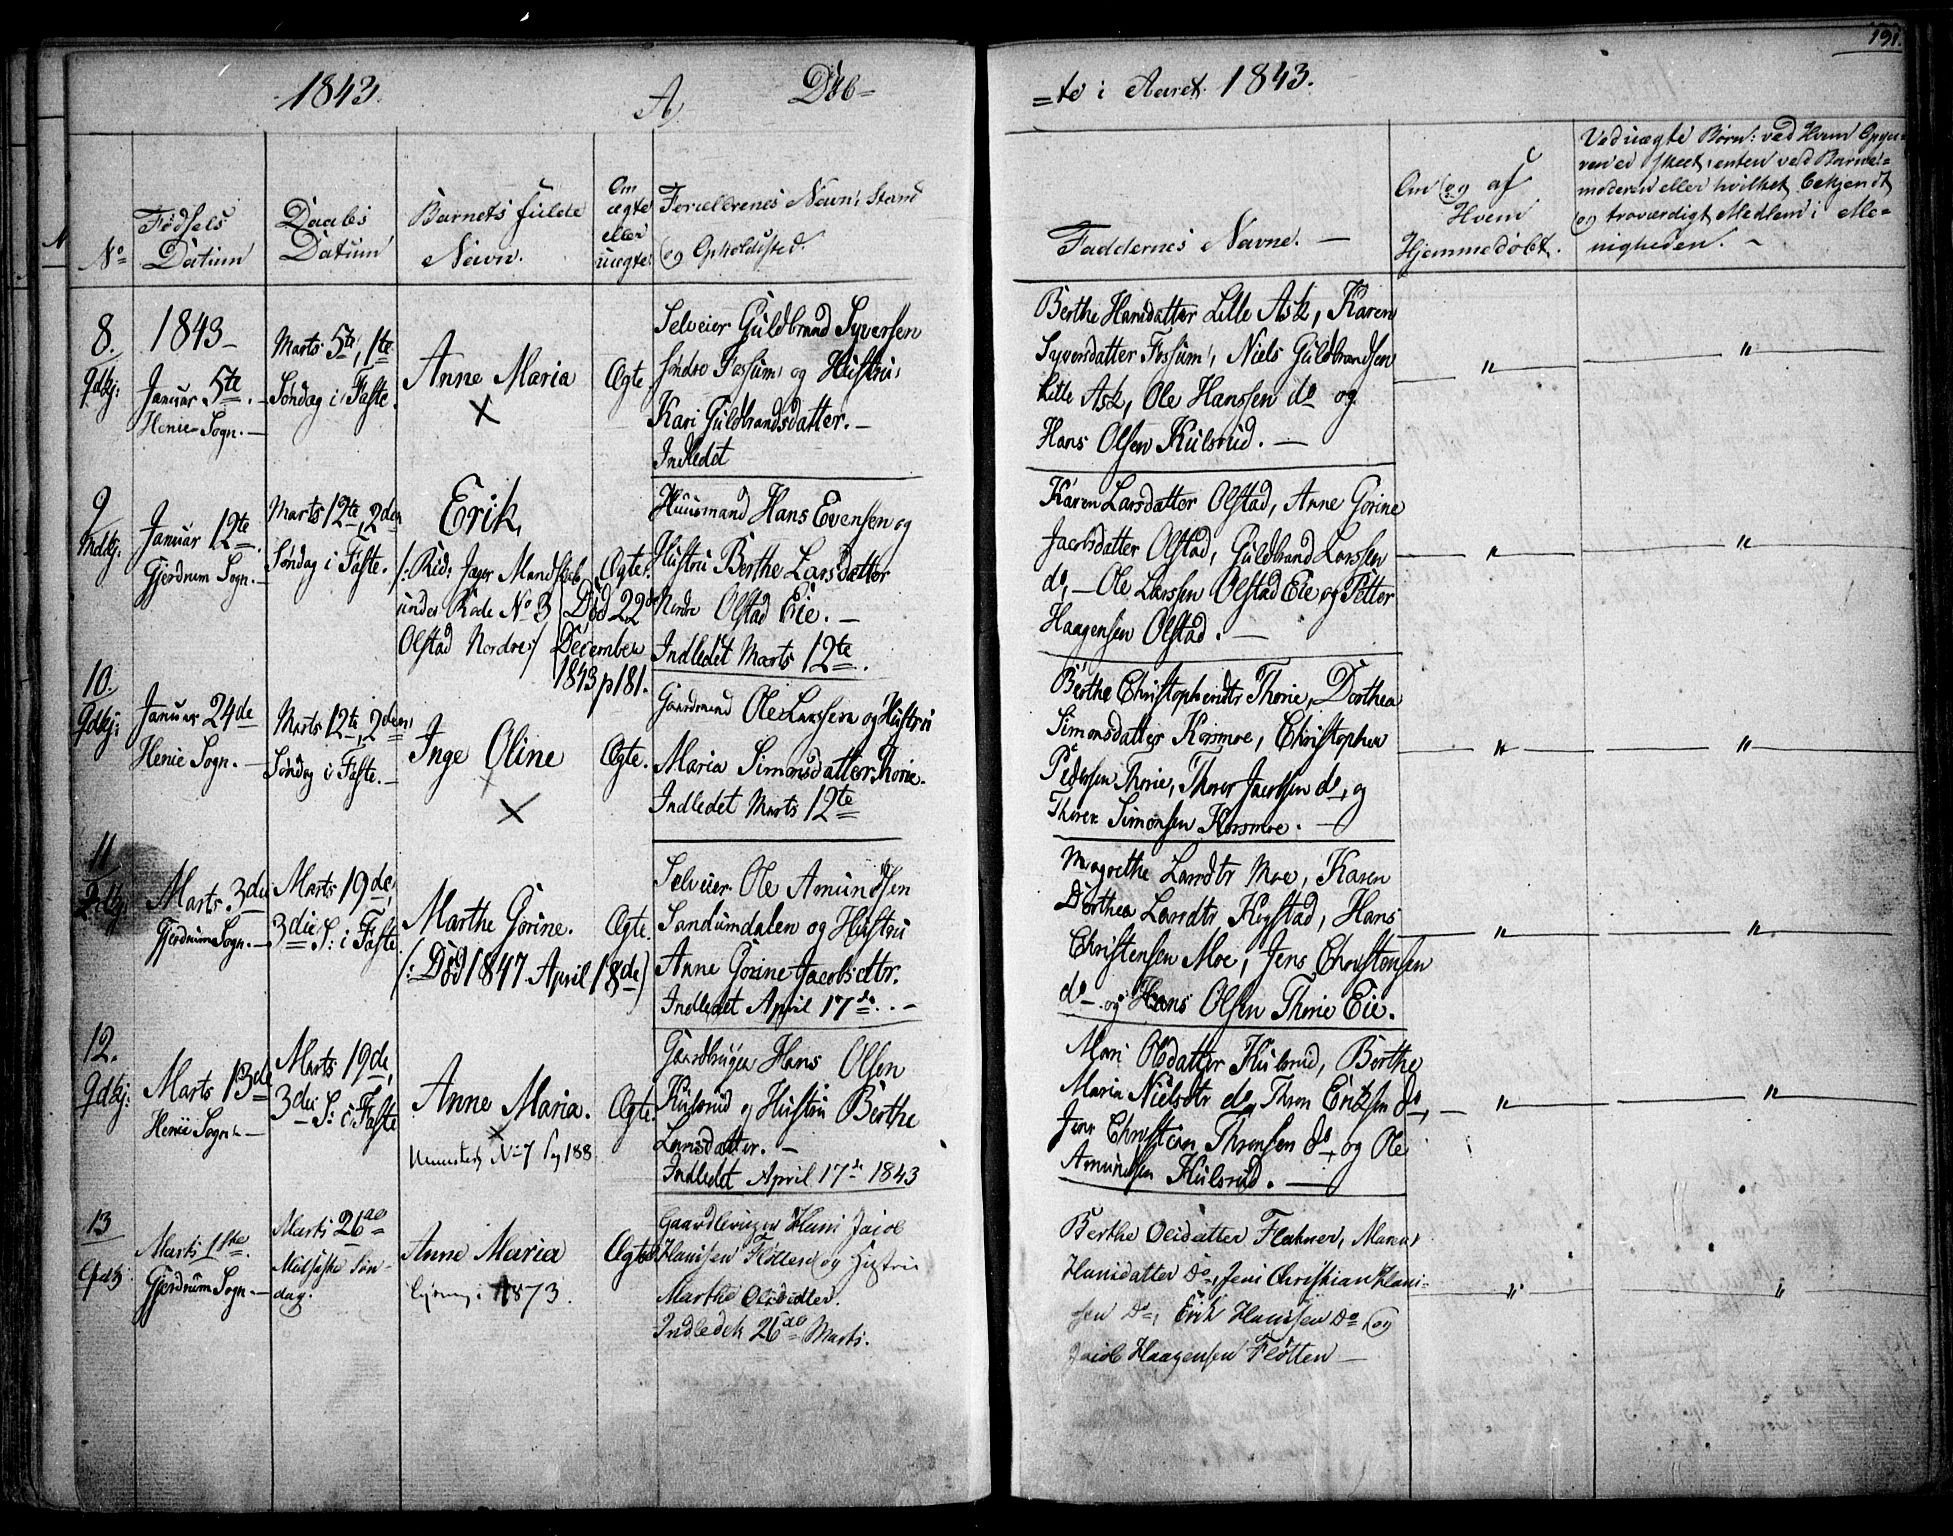 191.
1843.
A
Döb=
=te i Aaret 1843.
No
Fødsels Datum
Daabs Datum
Barnets fulde Navn.
Om ægte eller uægte.
Forældrenes Navn, Stand og Opholdssted.
Faddernes Navne. —
Om og af Hvem Hjemmedöbt.
Ved uægte Börn: ved Hvem Opga=
ven er skeet, enten ved Barne=
moderen eller hvilket bekjendt
og troværdigt Medlem i Me=
nigheden. —
8.
1843—
Januar 5te. —
Henie Sogn. —
Marts 5te, 1te
Søndag i Faste.
Anne Maria
X
Ægte
Selveier Guldbrand Syversen
Søndre Fossum, og Hustru,
Kari Guldbrandsdatter. —
Indledet
Berthe Hansdatter Lille Ask, Karen
Syversdatter Fossum, Niels Guldbrandsen
Lille Ask, Ole Hanssen do og
Hans Olsen Kulsrud. —
"
"
9
Januar 12te.
Gjerdrum Sogn. —
Marts 12te, 2den
Søndag i Faste.
Erik,
/: Rid: Jæger Mandskab
under Rode No 3
Olstad Nordre:/
Ægte.
Död 22de
December
1843 p 181.
Huusmand Hans Evensen og
Hustru Berthe Larsdatter
Nordre Olstad Eie. —
Indledet Marts 12te.
Karen Larsdatter Olstad, Anne Gorine
Jacobsdatter Olstad, Guldbrand Larssen
do, — Ole Larssen Olstad Eie og Petter
Haagensen Olstad. —
"
"
10.
Januar 24de
Henie Sogn. —
Marts 12te, 2den
Søndag i Faste. —
Inge Oline
X
Ægte.
Gaardmand Ole Larssen og Hustru
Maria Simonsdatter Thorie.
Indledet Marts 12te
Berthe Christophersdtr Thorie, Dorthea
Simonsdatter Korsmoe, Christopher
Pedersen Thorie, Thorer Jacobsen do, og
Thorer Simonsen Korsmoe. —
"
"
11
Marts 3die
Gjerdrum Sogn. —
Marts 19de,
3die S: i Faste
Marthe Gorine.
(: Död 1847 April 18de)
Ægte.
Selveier Ole Amundsen
Sandumdalen og Hustru
Anne Gorine Jacobsdtr.
Indledet April 17de. —
Magrethe Larsdtr Moe, Karen
Dorthea Larsdtr Kogstad, Hans
Christensen Moe, Jens Christensen
do — og Hans Olsen Thorie Eie.
"
"
12.
Marts 13de
Henie Sogn. —
Marts 19de,
3die S: i Faste
Anne Maria.
X
No 7 188
Ægte
Gaardbruger Hans Olsen
Kulsrud og Hustru Berthe
Larsdatter. —
Indledet April 17de 1843
Mari Olsdatter Kulsrud, Berthe
Maria Nielsdtr do, Thron Eriksen do,
Jens Christian Thronsen do, og Ole
Amundsen Kulsrud. —
"
"
13
Marts 1ste.
Gjerdrum Sogn. —
Marts 26de
Midfaste Søn-
dag.
Anne Maria
1873.
Ægte
Gaardbruger Hans Jacob
Hanssen Flötten og Hustru
Marthe Olsdatter.
Indledet 26de Marts.
Berthe Olsdatter Flahner, Maren
Hansdatter Do, Jens Christian Hans=
sen Do, Erik Hanssen Do og
Jacob Haagensen Flötten —
"
"